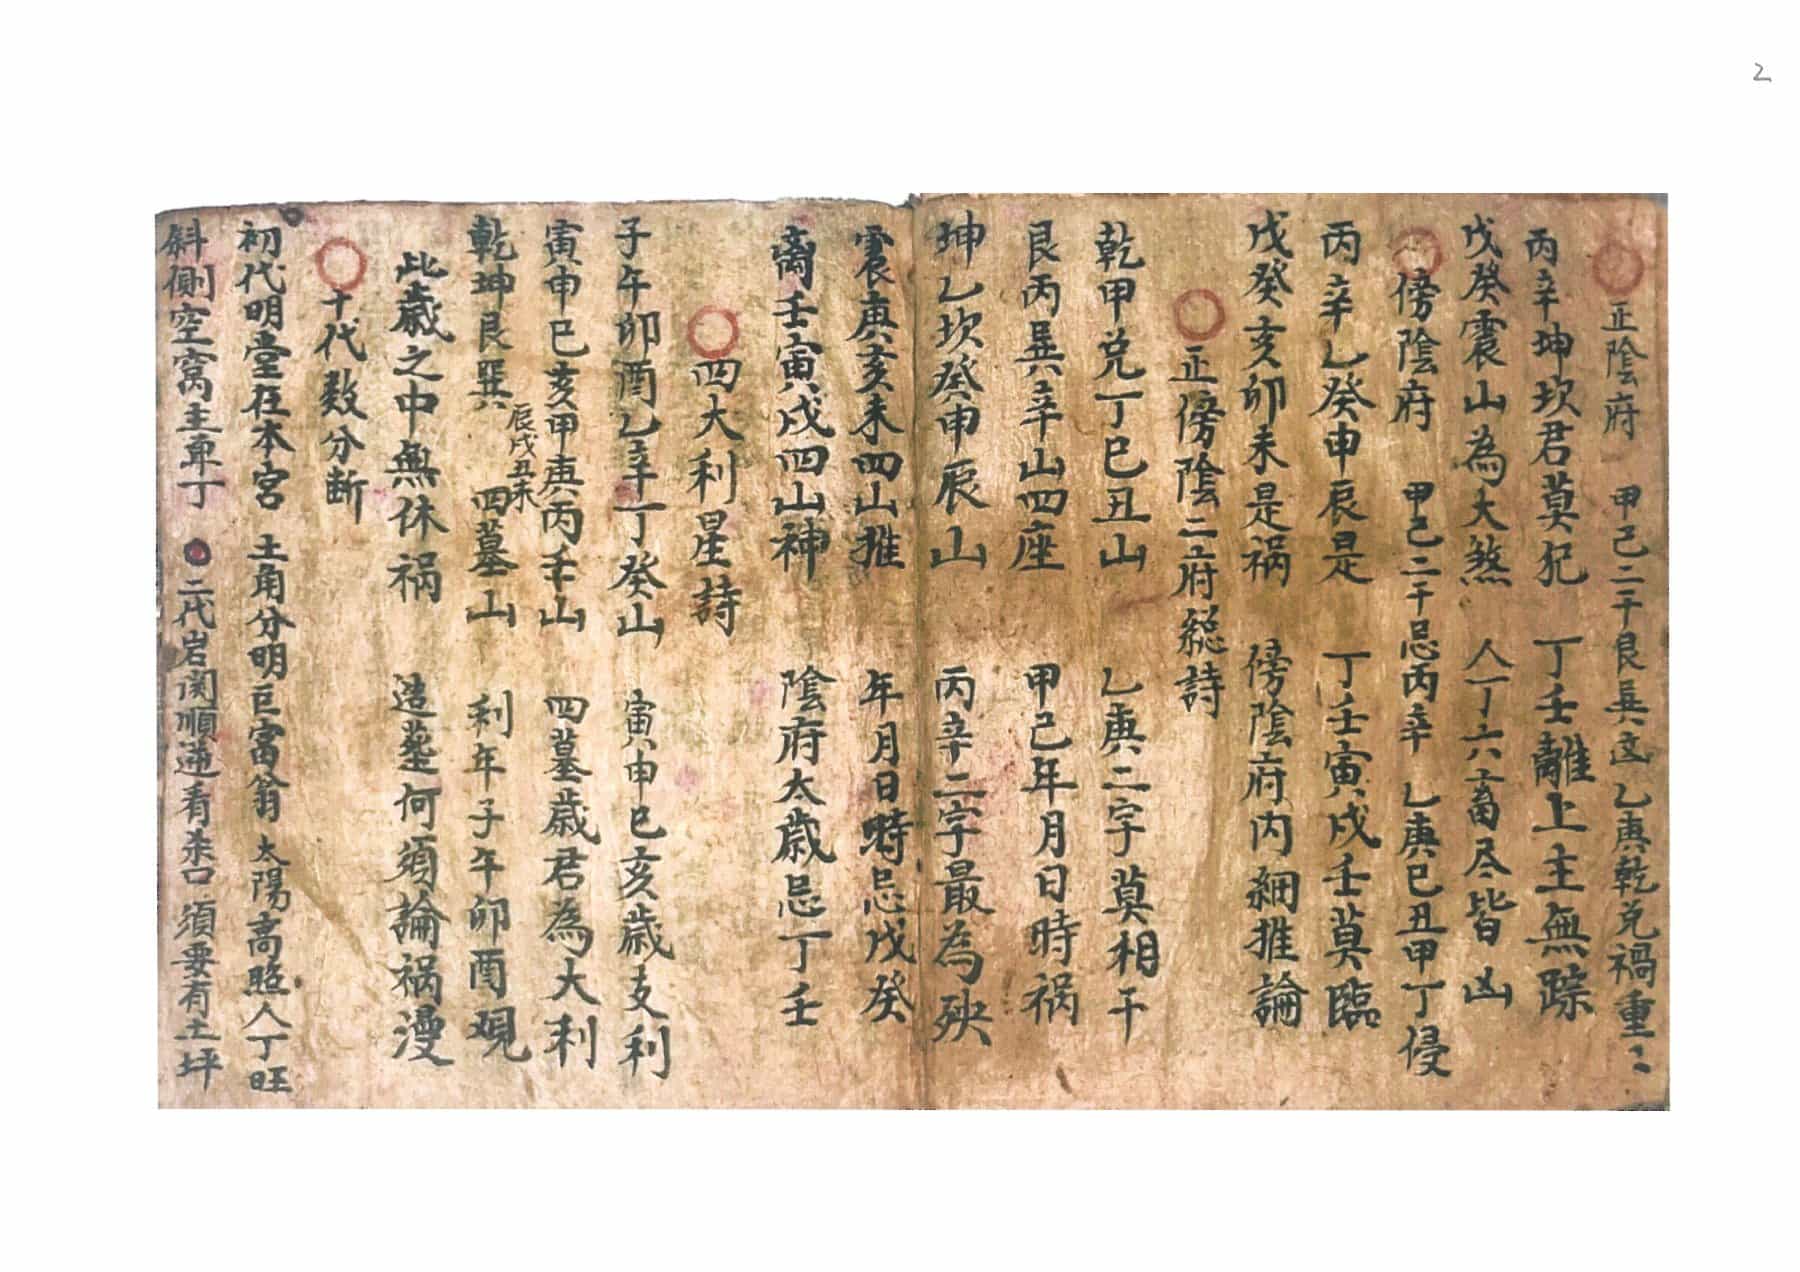 2
正陰府 甲己二干艮巽 乙庚乾兌禍重〻
丙辛坤坎君莫犯 丁壬離上主無踪
戊癸震山為大煞 人丁六畜尽皆凶
傍陰府 甲己二干忌丙辛 乙庚巳丑甲丁侵
丙辛乙癸申辰是 丁壬寅戌壬莫臨
戊癸亥卯未是祸 傍陰府内細推論
正傍陰二府總詩
乾甲兌丁巳丑山 乙庚二字莫相干
艮丙巽辛山四座 甲己年月日時祸
坤乙坎癸申辰山 丙辛二字最為殃
震庚亥未四山推 年月日時忌戊癸
离壬寅戌四山神 陰府太歲忌丁壬
四大利星詩
子午卯酉乙辛丁癸山 寅申巳亥歲支利
寅申巳亥甲庚丙壬山 四墓歲君為大利
乾坤艮巽辰戌丑未四墓山 利年子午卯酉观
此歲之中無休祸 造塟何須論祸漫
十代数分断
初代明堂在本宮 土角分明巨富翁 太陽高照人丁旺
斜侧空窩主卑丁 二代岩関順逆看 杀口須要有土坪